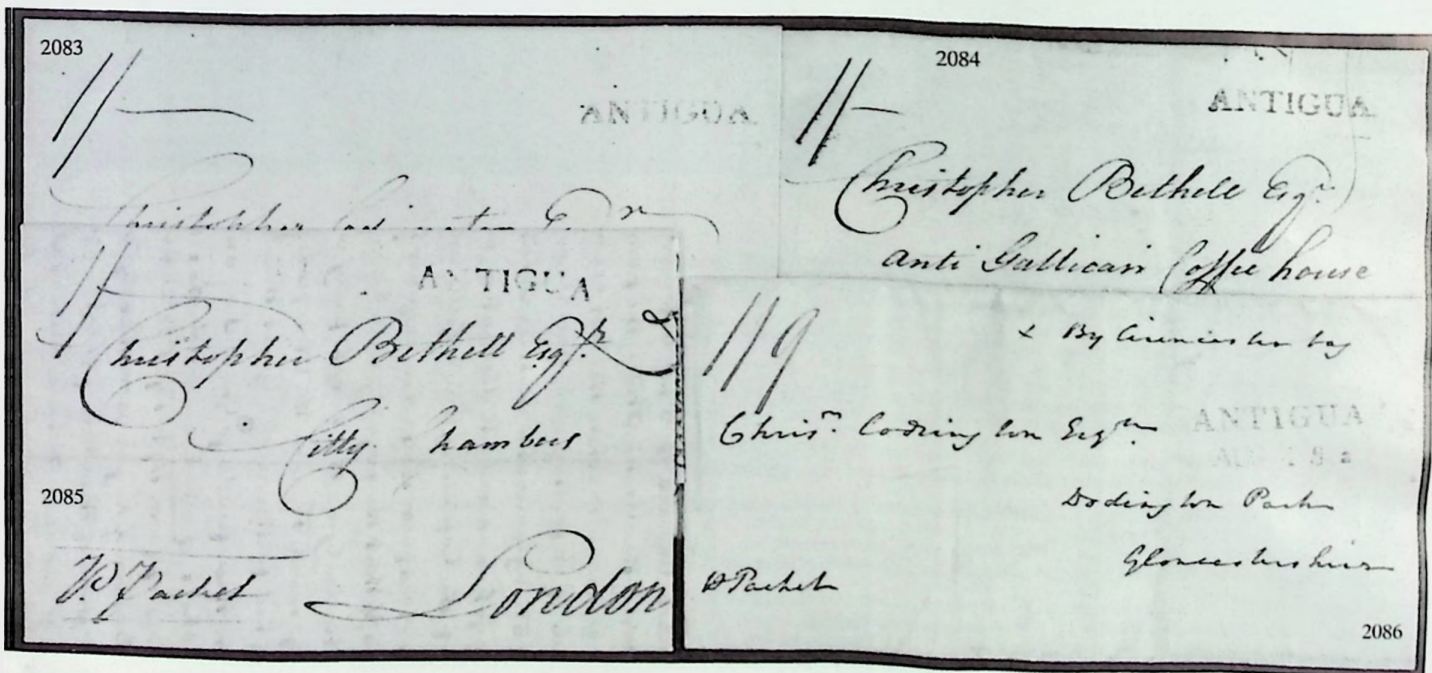 2083
1/-
ANTIGUA
Christopher Codrington Esqr
2084
1/-
ANTIGUA
Christopher Bethell Esqr.
Anti Gallican Coffee house
1/-
ANTIGUA
Christopher Bethell Esqr.
Citty Chambers
2085
P. Packet
London
1/9
x By Cirencester bag
ANTIGUA
Chrisr. Codrington Esqr.
Dodington Park
Gloucestershire
P Packet
2086